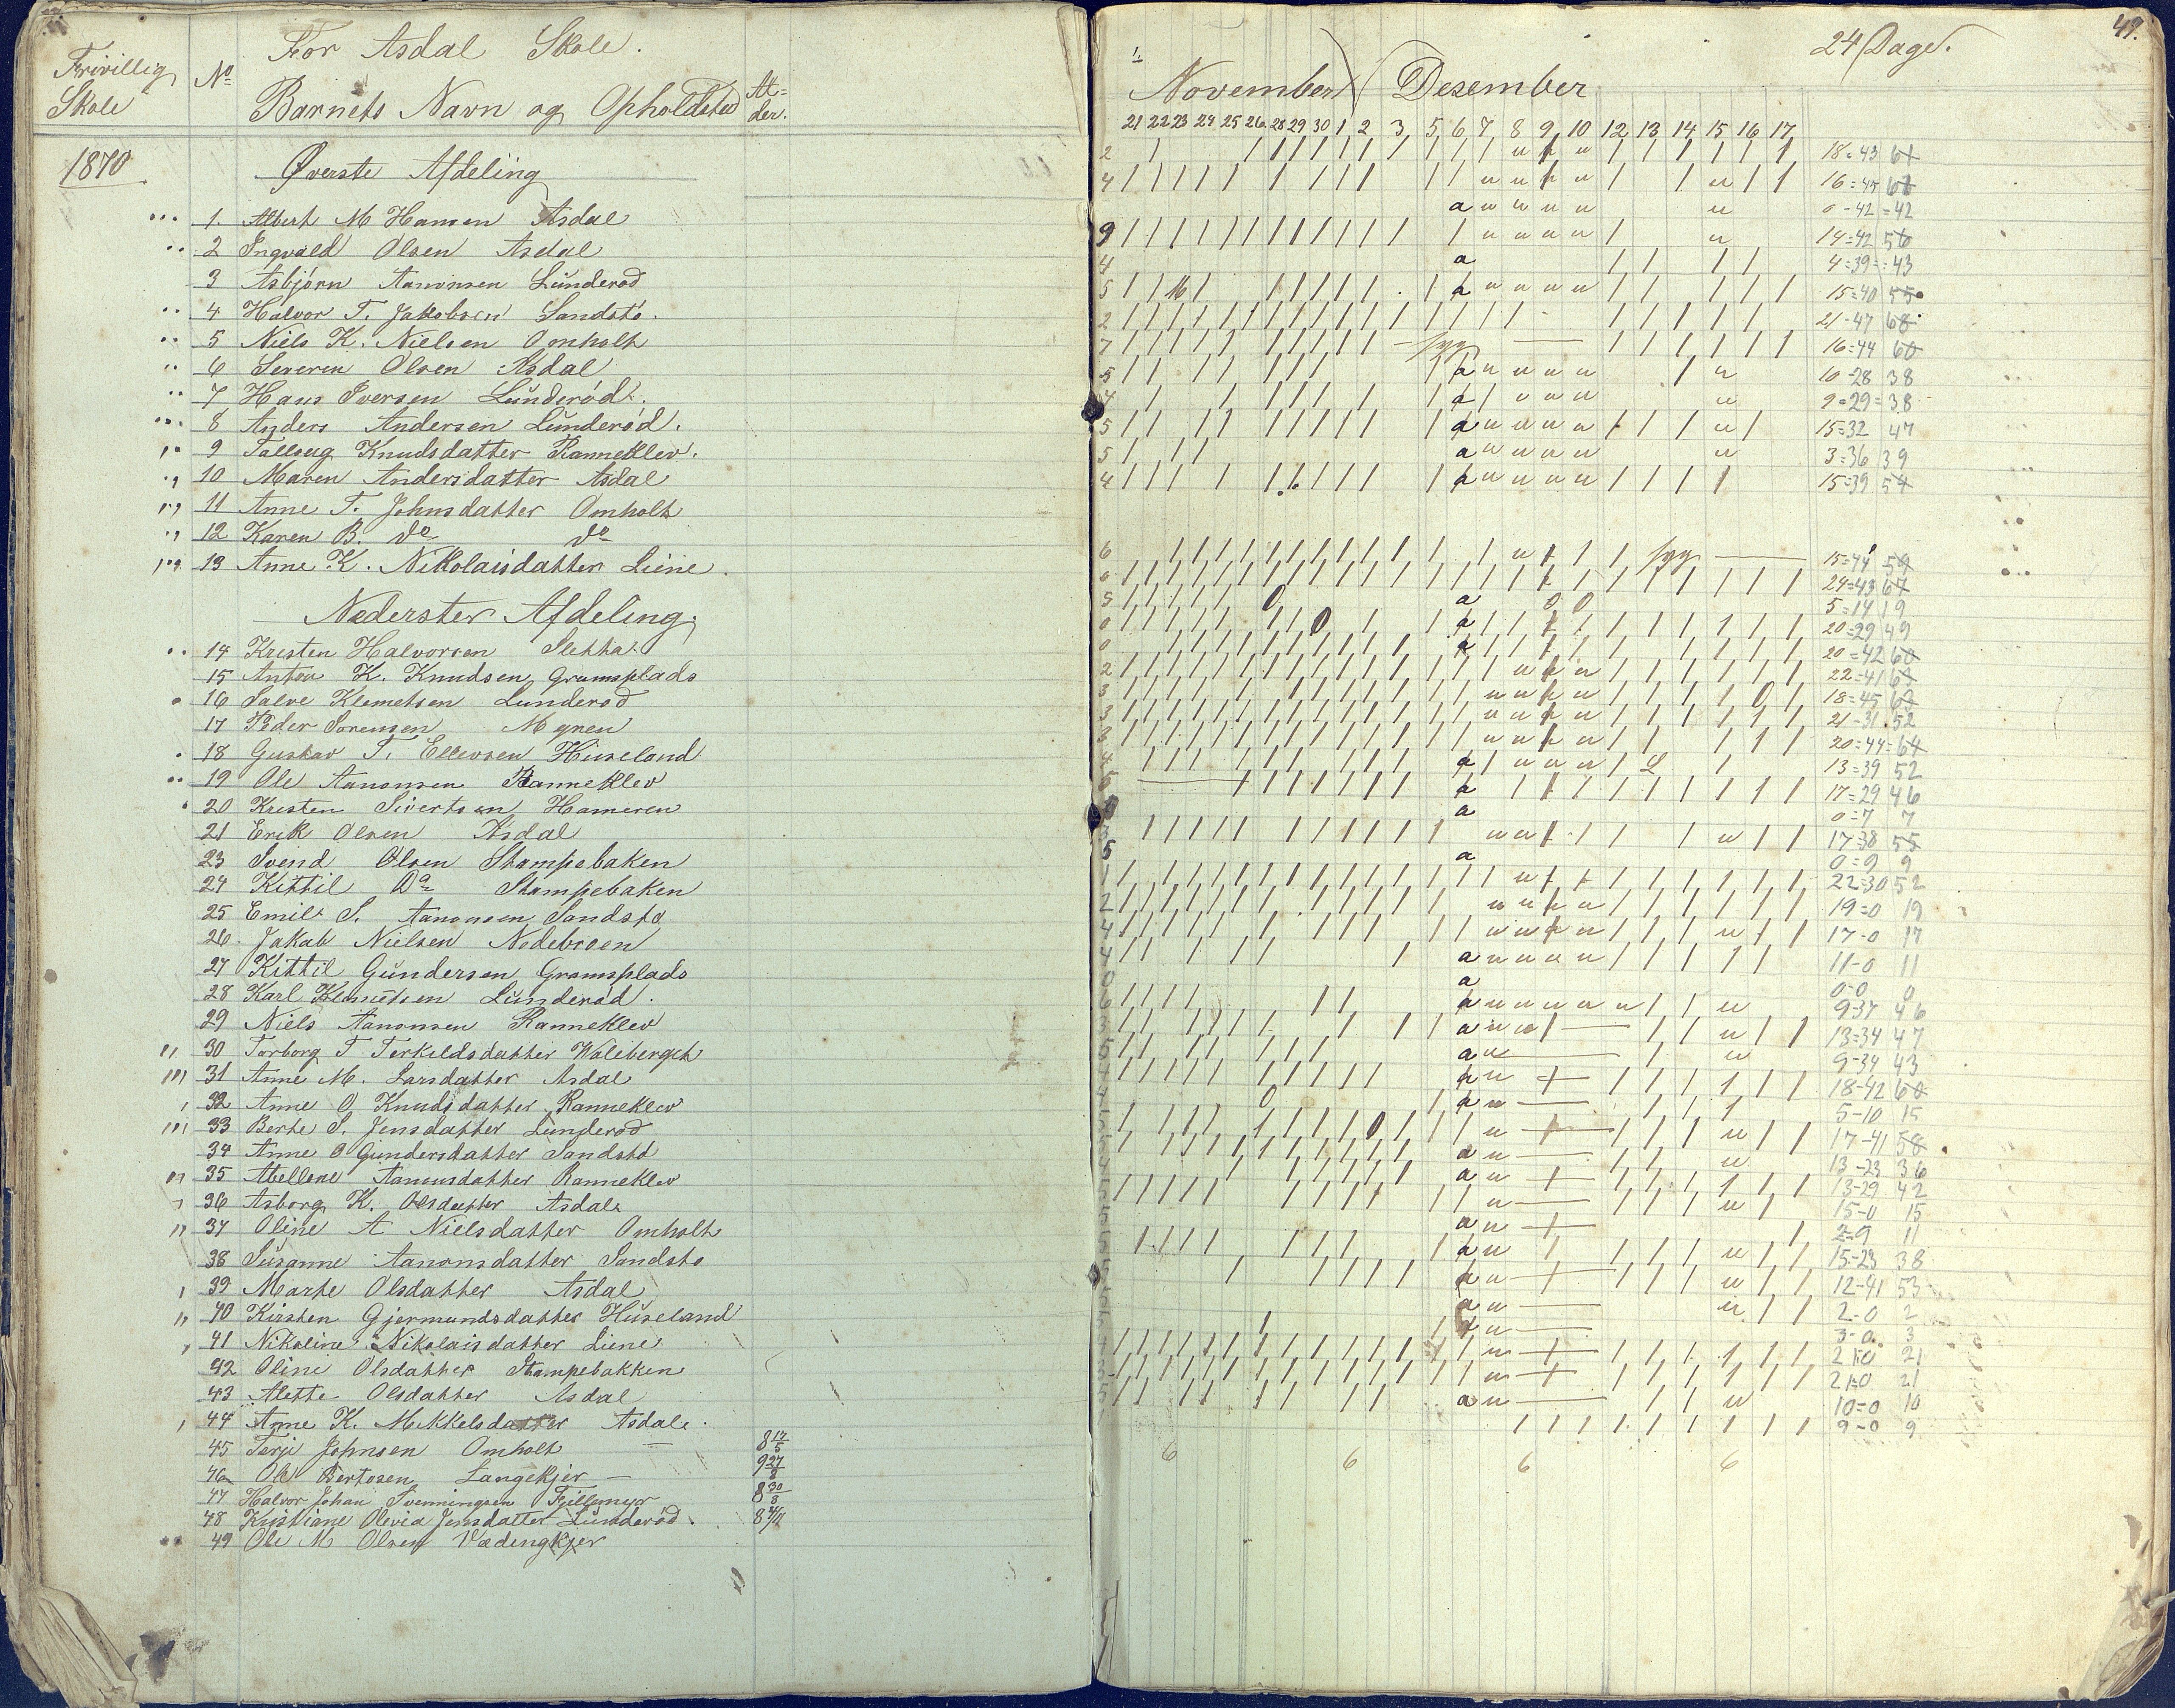 Frivillig Skole
No
For Asdal Skole.
Barnets Navn og Opholdsted
Al-
der.
1870
Øverste Afdeling
1. Albert M Hansen Asdal
2 Ingvald Olsen Asdal
3 Asbjørn Aanonsen Lunderød
4 Halvor T. Jakobsen Sandstø.
5 Niels K. Nielsen Omholt
6 Severin Olsen Asdal
7 Hans Iversen Lunderød.
8 Anders Andersen Lunderød.
9 Talleug Knudsdatter Ranneklev.
10 Maren Andersdatter Asdal
11 Anne T. Johnsdatter Omholt
12 Karen B. do do
13 Anne K. Nikolaisdatter Liene
Nederster Afdeling.
14 Kristen Halvorsen Sletta
15 Anton K. Knudsen Gramsplads
16 Salve Klemetsen Lunderød
17 Peder Sørensen Myren
18 Gustav T. Ellevsen Huseland
19 Ole Aanonsen Ranneklev
20 Kristen Sivertsen Hameren
21 Erik Olsen Asdal
23 Svend Olsen Stampebaken
24 Kittil Do Stampebaken
25 Emil S. Aanonsen Sandstø
26. Jakob Nielsen Nedebroen
27 Kittil Gundersen Gramsplads
28 Karl Klemetsen Lunderød.
29 Niels Aanonsen Ranneklev
30 Torborg T Terkildsdatter
31 Anne M. Larsdatter Asdal
32 Anne O Knudsdatter Ranneklev
33 Berte S. Jensdatter Lunderød
34 Anne O Gundersdatter Sandstø
35 Abellone Aanonsdatter Ranneklev
36 Asborg K. Olsdatter Asdal
37 Oline A Nielsdatter Omholt
38 Susanne Aanonsdatter Sandstø
39 Marte Olsdatter Asdal
40 Kirsten Gjermundsdatter Huseland
41 Nikoline Nikolaisdatter Liene
42 Oline Olsdatter Stampebakken
43 Alette Olsdatter Asdal
44 Anne K. Mikkelsdatter Asdal.
45 Terje Johnsen Omholt 8 17/5
46 Ole Bertosen Langekjer 9 27/8
47 Halvor Johan Svenningsen Fjellmyr 8 30/8
48 Kristiane Olevia Jensdatter Lunderød. 8 4/11
49 Ole M Olsen Vædengkjer
49.
24 Dage.
1.
November Desember
21 22 23 24 25 26 28 29 30 1 2 3 5 6 7 8 9 10 12 13 14 15 16 17
2 18-43 61
4 16=45 61
0-42=42
9 14=42 56
4 4=39=43
5 15=40 55
2 21-47 68
7 syg 16=44 60
5 10-28 38
4 9=29=38
5 15=32 47
5 3=36 39
4 15=39 54
6 syg 15=44 59
6 24=43 67
5 5=14 19
0 20=29 49
0 20=42 60
2 22=41 63
3 18=45 63
3 21-31.52
3 20=44=64
4 13=39 52
5 17=29 46
0=7 7
3 17=38 55
5 0=9 9
1 22=30 52
2 19=0 19
4 17-0 17
4 11-0 11
0 0-0 0
6 9-37 46
3 13=34 47
5 9-34 43
18-42 60
5-10 15
17-41 58
13-23 36
13-29 42
15-0 15
2=9 11
15-23 38
12-41 53
2-0 2
3-0 3
21-0 21
21-0 21
10=0 10
9-0 9
6 6 6 6